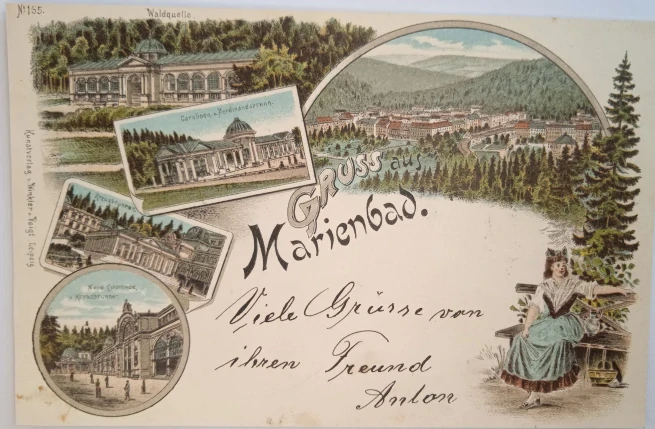 No 155.
Waldquelle
Carolinen u. Ferdinandsbrunn.
Kreuzbrunnen
Neue Colonnade
u. Kreuzbrunnen
Kunstverlag v. Winkler u. Voigt, Leipzig
Gruss aus
Marienbad.
Viele Grüsse von
ihren Freund
Anton